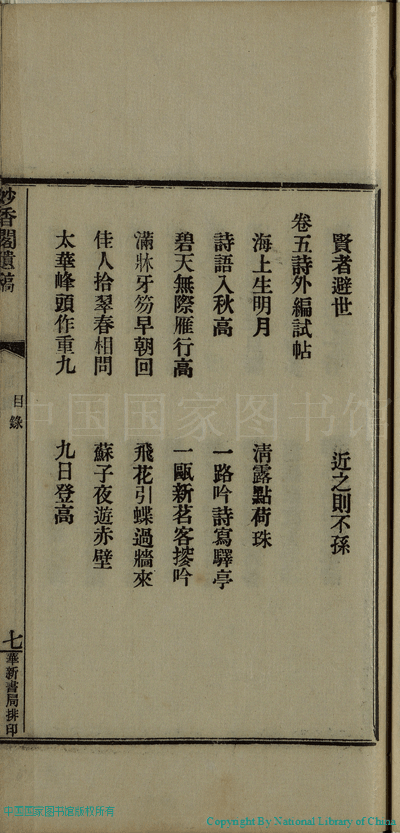 賢者避世　近之則不孫
卷五詩外編試帖
海上生明月　清露點荷珠
詩語入秋高　一路吟詩寫驛亭
碧天無際雁行高　一甌新茗客捘吟
滿牀牙笏早朝回　飛花引蝶過牆來
佳人拾翠春相問　蘇子夜遊赤壁
太華峰頭作重九　九日登高
妙香閣遺稿
目錄
七
華新書局排印
中国国家图书馆
中国国家图书馆版权所有
Copyright By National Library of China